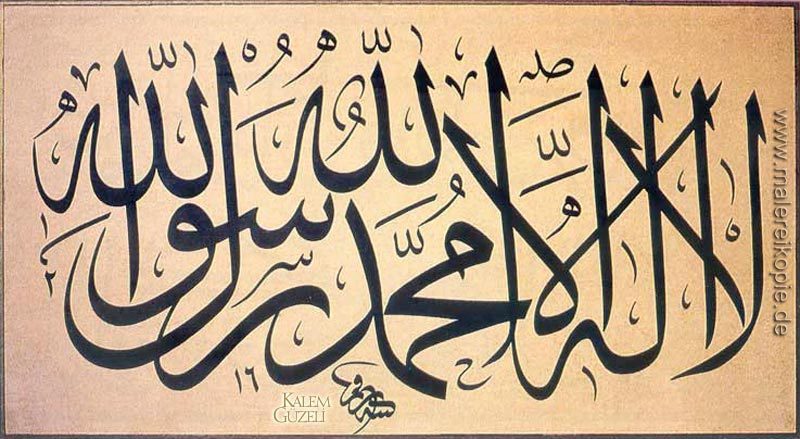 لا اله الا الله محمد رسول الله
KALEM
GÜZELİ
www.malereikopie.de